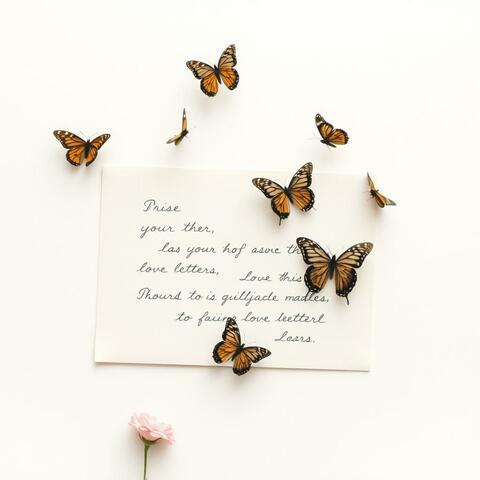 Prise
your ther,
las your hof asve th
love letters, Love this
Phourd to is guilljade madles.
to faiing love leetterl
Lears.